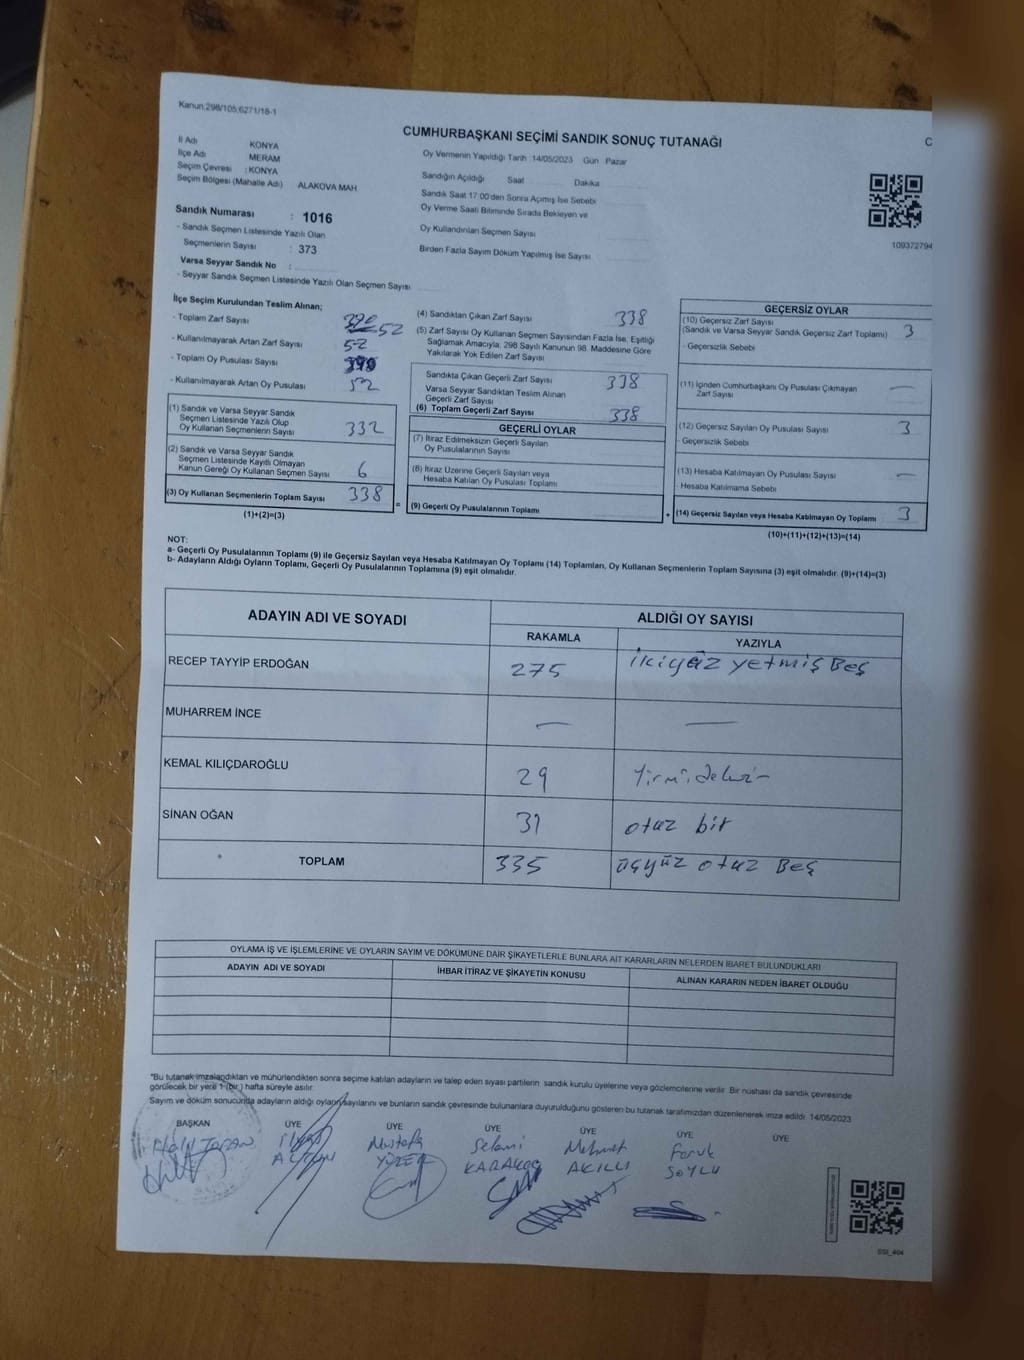 Kanun:298/105;6271/18-1
CUMHURBAŞKANI SEÇİMİ SANDIK SONUÇ TUTANAĞI
C
İl Adı KONYA
İlçe Adı MERAM
Seçim Çevresi : KONYA
Seçim Bölgesi (Mahalle Adı) ALAKOVA MAH.
Sandık Numarası : 1016
- Sandık Seçmen Listesinde Yazılı Olan
Seçmenlerin Sayısı : 373
Varsa Seyyar Sandık No :
- Seyyar Sandık Seçmen Listesinde Yazılı Olan Seçmen Sayısı
Oy Vermenin Yapıldığı Tarih 14/05/2023 Gün Pazar
Sandığın Açıldığı Saat Dakika
Sandık Saat 17:00'den Sonra Açımış İse Sebebi
Oy Verme Saati Bitiminde Sırada Bekleyen ve
Oy Kullandırılan Seçmen Sayısı
Birden Fazla Sayım Döküm Yapılmış İse Sayısı
109372794
İlçe Seçim Kurulundan Teslim Alınan;
- Toplam Zarf Sayısı 52
- Kullanılmayarak Artan Zarf Sayısı 52
- Toplam Oy Pusulası Sayısı
- Kullanılmayarak Artan Oy Pusulası 52
(1) Sandık ve Varsa Seyyar Sandık
Seçmen Listesinde Yazılı Olup
Oy Kullanan Seçmenlerin Sayısı 332
(2) Sandık ve Varsa Seyyar Sandık
Seçmen Listesinde Kayıtlı Olmayan
Kanun Gereği Oy Kullanan Seçmen Sayısı 6
(3) Oy Kullanan Seçmenlerin Toplam Sayısı 338
(1)+(2)=(3)
(4) Sandıktan Çıkan Zarf Sayısı 338
(5) Zarf Sayısı Oy Kullanan Seçmen Sayısından Fazla İse, Eşitliği
Sağlamak Amacıyla; 298 Sayılı Kanunun 98. Maddesine Göre
Yakılarak Yok Edilen Zarf Sayısı
Sandıkta Çıkan Geçerli Zarf Sayısı 338
Varsa Seyyar Sandıktan Teslim Alınan
Geçerli Zarf Sayısı
(6) Toplam Geçerli Zarf Sayısı 338
GEÇERLİ OYLAR
(7) İtiraz Edilmeksizin Geçerli Sayılan
Oy Pusulalarının Sayısı
(8) İtiraz Üzerine Geçerli Sayılan veya
Hesaba Katılan Oy Pusulası Toplamı
= (9) Geçerli Oy Pusulalarının Toplamı +
GEÇERSİZ OYLAR
(10) Geçersiz Zarf Sayısı
(Sandık ve Varsa Seyyar Sandık Geçersiz Zarf Toplamı) 3
- Geçersizlik Sebebi
(11) İçinden Cumhurbaşkanı Oy Pusulası Çıkmayan
Zarf Sayısı —
(12) Geçersiz Sayılan Oy Pusulası Sayısı 3
- Geçersizlik Sebebi
(13) Hesaba Katılmayan Oy Pusulası Sayısı —
Hesaba Katılmama Sebebi
(14) Geçersiz Sayılan veya Hesaba Katılmayan Oy Toplamı 3
(10)+(11)+(12)+(13)=(14)
NOT:
a- Geçerli Oy Pusulalarının Toplamı (9) ile Geçersiz Sayılan veya Hesaba Katılmayan Oy Toplamı (14) Toplamları, Oy Kullanan Seçmenlerin Toplam Sayısına (3) eşit olmalıdır. (9)+(14)=(3)
b- Adayların Aldığı Oyların Toplamı, Geçerli Oy Pusulalarının Toplamına (9) eşit olmalıdır.
ADAYIN ADI VE SOYADI ALDIĞI OY SAYISI
RAKAMLA YAZIYLA
RECEP TAYYİP ERDOĞAN 275 ikiyüz yetmiş Beş
MUHARREM İNCE — —
KEMAL KILIÇDAROĞLU 29
SİNAN OĞAN 31 otuz bir
TOPLAM 335 üçyüz otuz Beş
OYLAMA İŞ VE İŞLEMLERİNE VE OYLARIN SAYIM VE DÖKÜMÜNE DAİR ŞİKAYETLERLE BUNLARA AİT KARARLARIN NELERDEN İBARET BULUNDUKLARI
ADAYIN ADI VE SOYADI İHBAR İTİRAZ VE ŞİKAYETİN KONUSU ALINAN KARARIN NEDEN İBARET OLDUĞU
"Bu tutanak imzalandıktan ve mühürlendikten sonra seçime katılan adayların ve talep eden siyasi partilerin sandık kurulu üyelerine veya gözlemcilerine verilir. Bir nüshası da sandık çevresinde
görülecek bir yere 1 (bir) hafta süreyle asılır.
Sayım ve döküm sonucunda adayların aldığı oyların sayılarını ve bunların sandık çevresinde bulunanlara duyurulduğunu gösteren bu tutanak tarafımızdan düzenlenerek imza edildi. 14/05/2023
BAŞKAN ÜYE ÜYE ÜYE ÜYE ÜYE ÜYE
Mustafa Selami Mehmet Faruk
ALTUN YÜZER KARAKOÇ AKILLI SOYLU
SSI_404